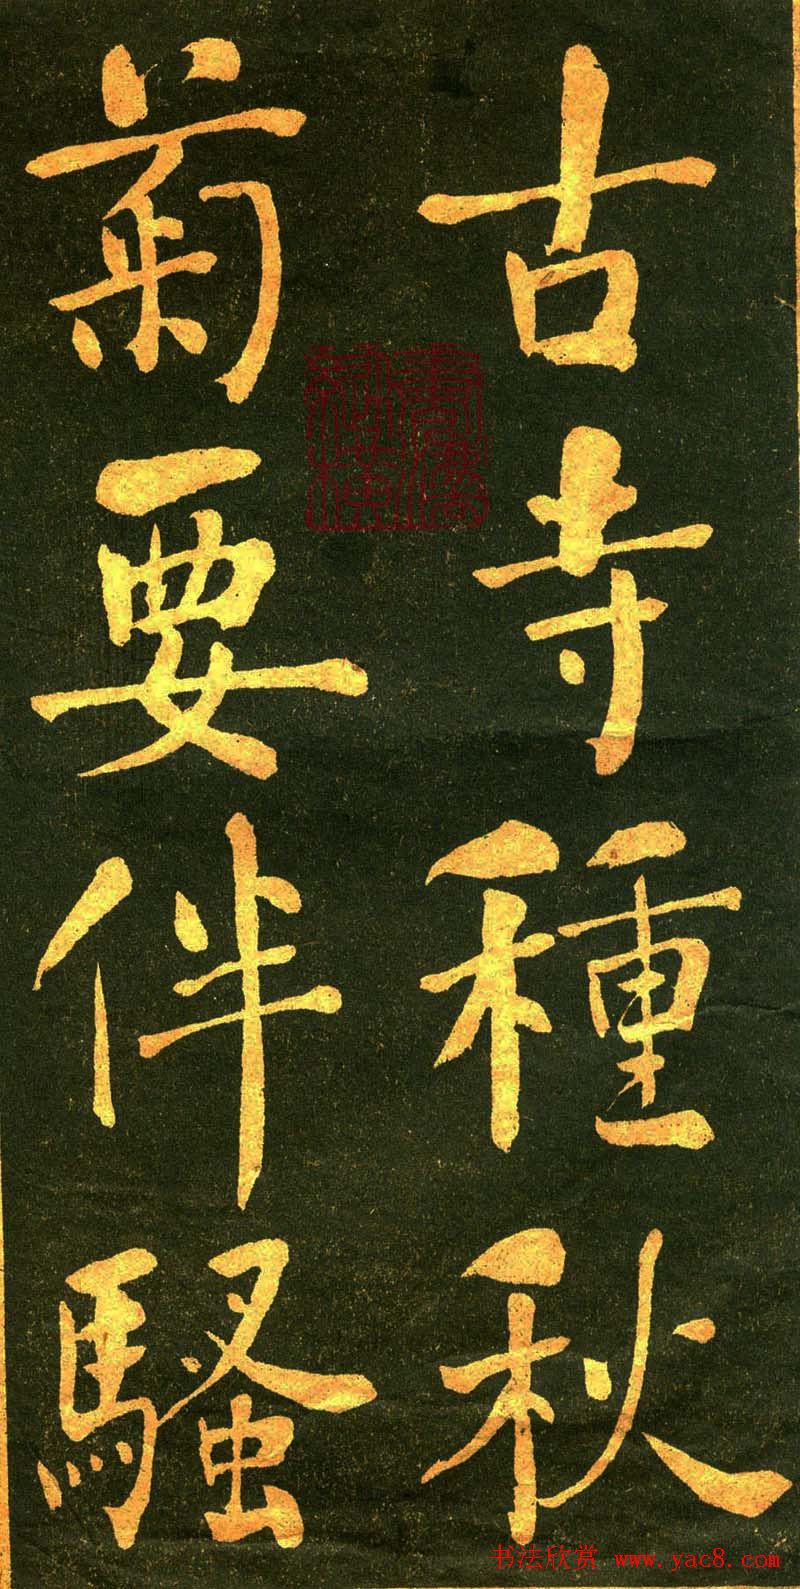 古寺種秋
菊要伴騷
书法欣赏 www.yac8.com